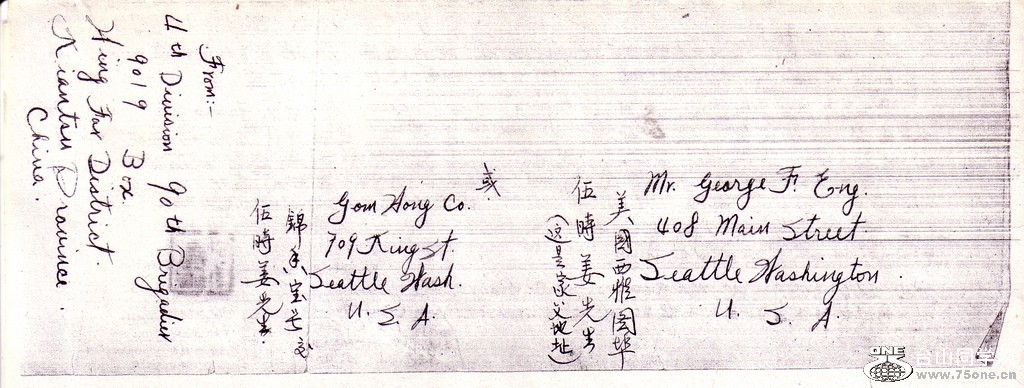 From:-
4th Division 90th Brigadier
9019 Box.
Hing Far District
Kiantsu Province.
China.
Mr. George F. Eng.
408 Main Street
Seattle Washington.
U. S. A.
美國西雅圖埠
伍時姜先生
(這是家父地址。)
或
Gom Hong Co.
709 King St.
Seattle Wash.
U. S. A.
錦 宝号交
伍時姜先生.
ONE
台山同学
www.75one.cn